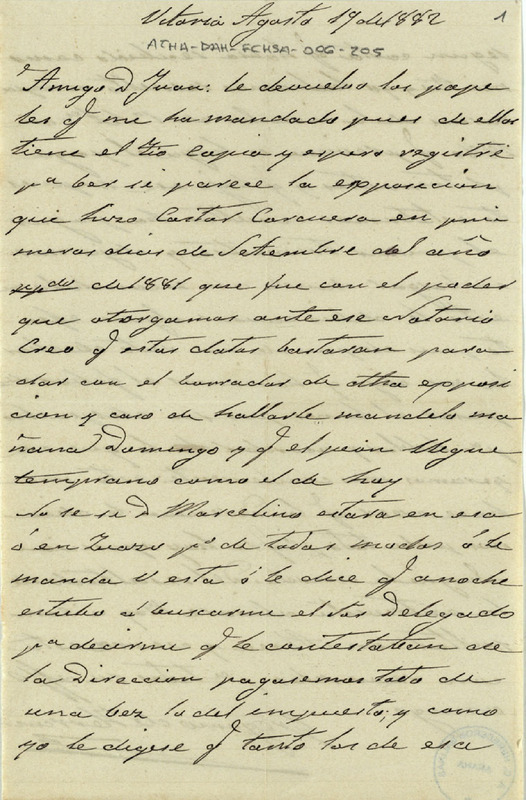 Vitoria Agosto 19 de 1882
1
ATHA-DAH-FCHSA-006-205
Amigo D Juan: le devuelvo los pape
les q me ha mandado pues de ellos
tiene el Tio copia y espero registre
pª ber si parece la exposicion
que hizo Castor Corcuera en pri
meros dias de Setiembre del año
de 1881 que fue con el poder
que otorgamos ante ese Notario
Creo q estos datos bastaran para
dar con el borrador de dha exposi
cion y caso de hallarle mandelo ma
ñana Domingo y q el peon llegue
temprano como el de hoy
No se si D Marcelino estara en esa
ó en Zuazo pº de todos modos ó le
manda V esta ó le dice q anoche
estubo á buscarme el Sor Delegado
pª decirme q le contestaban de
la Direccion pagasemos todo de
una bez lo del impuesto; y como
yo le digese q tanto los de esa